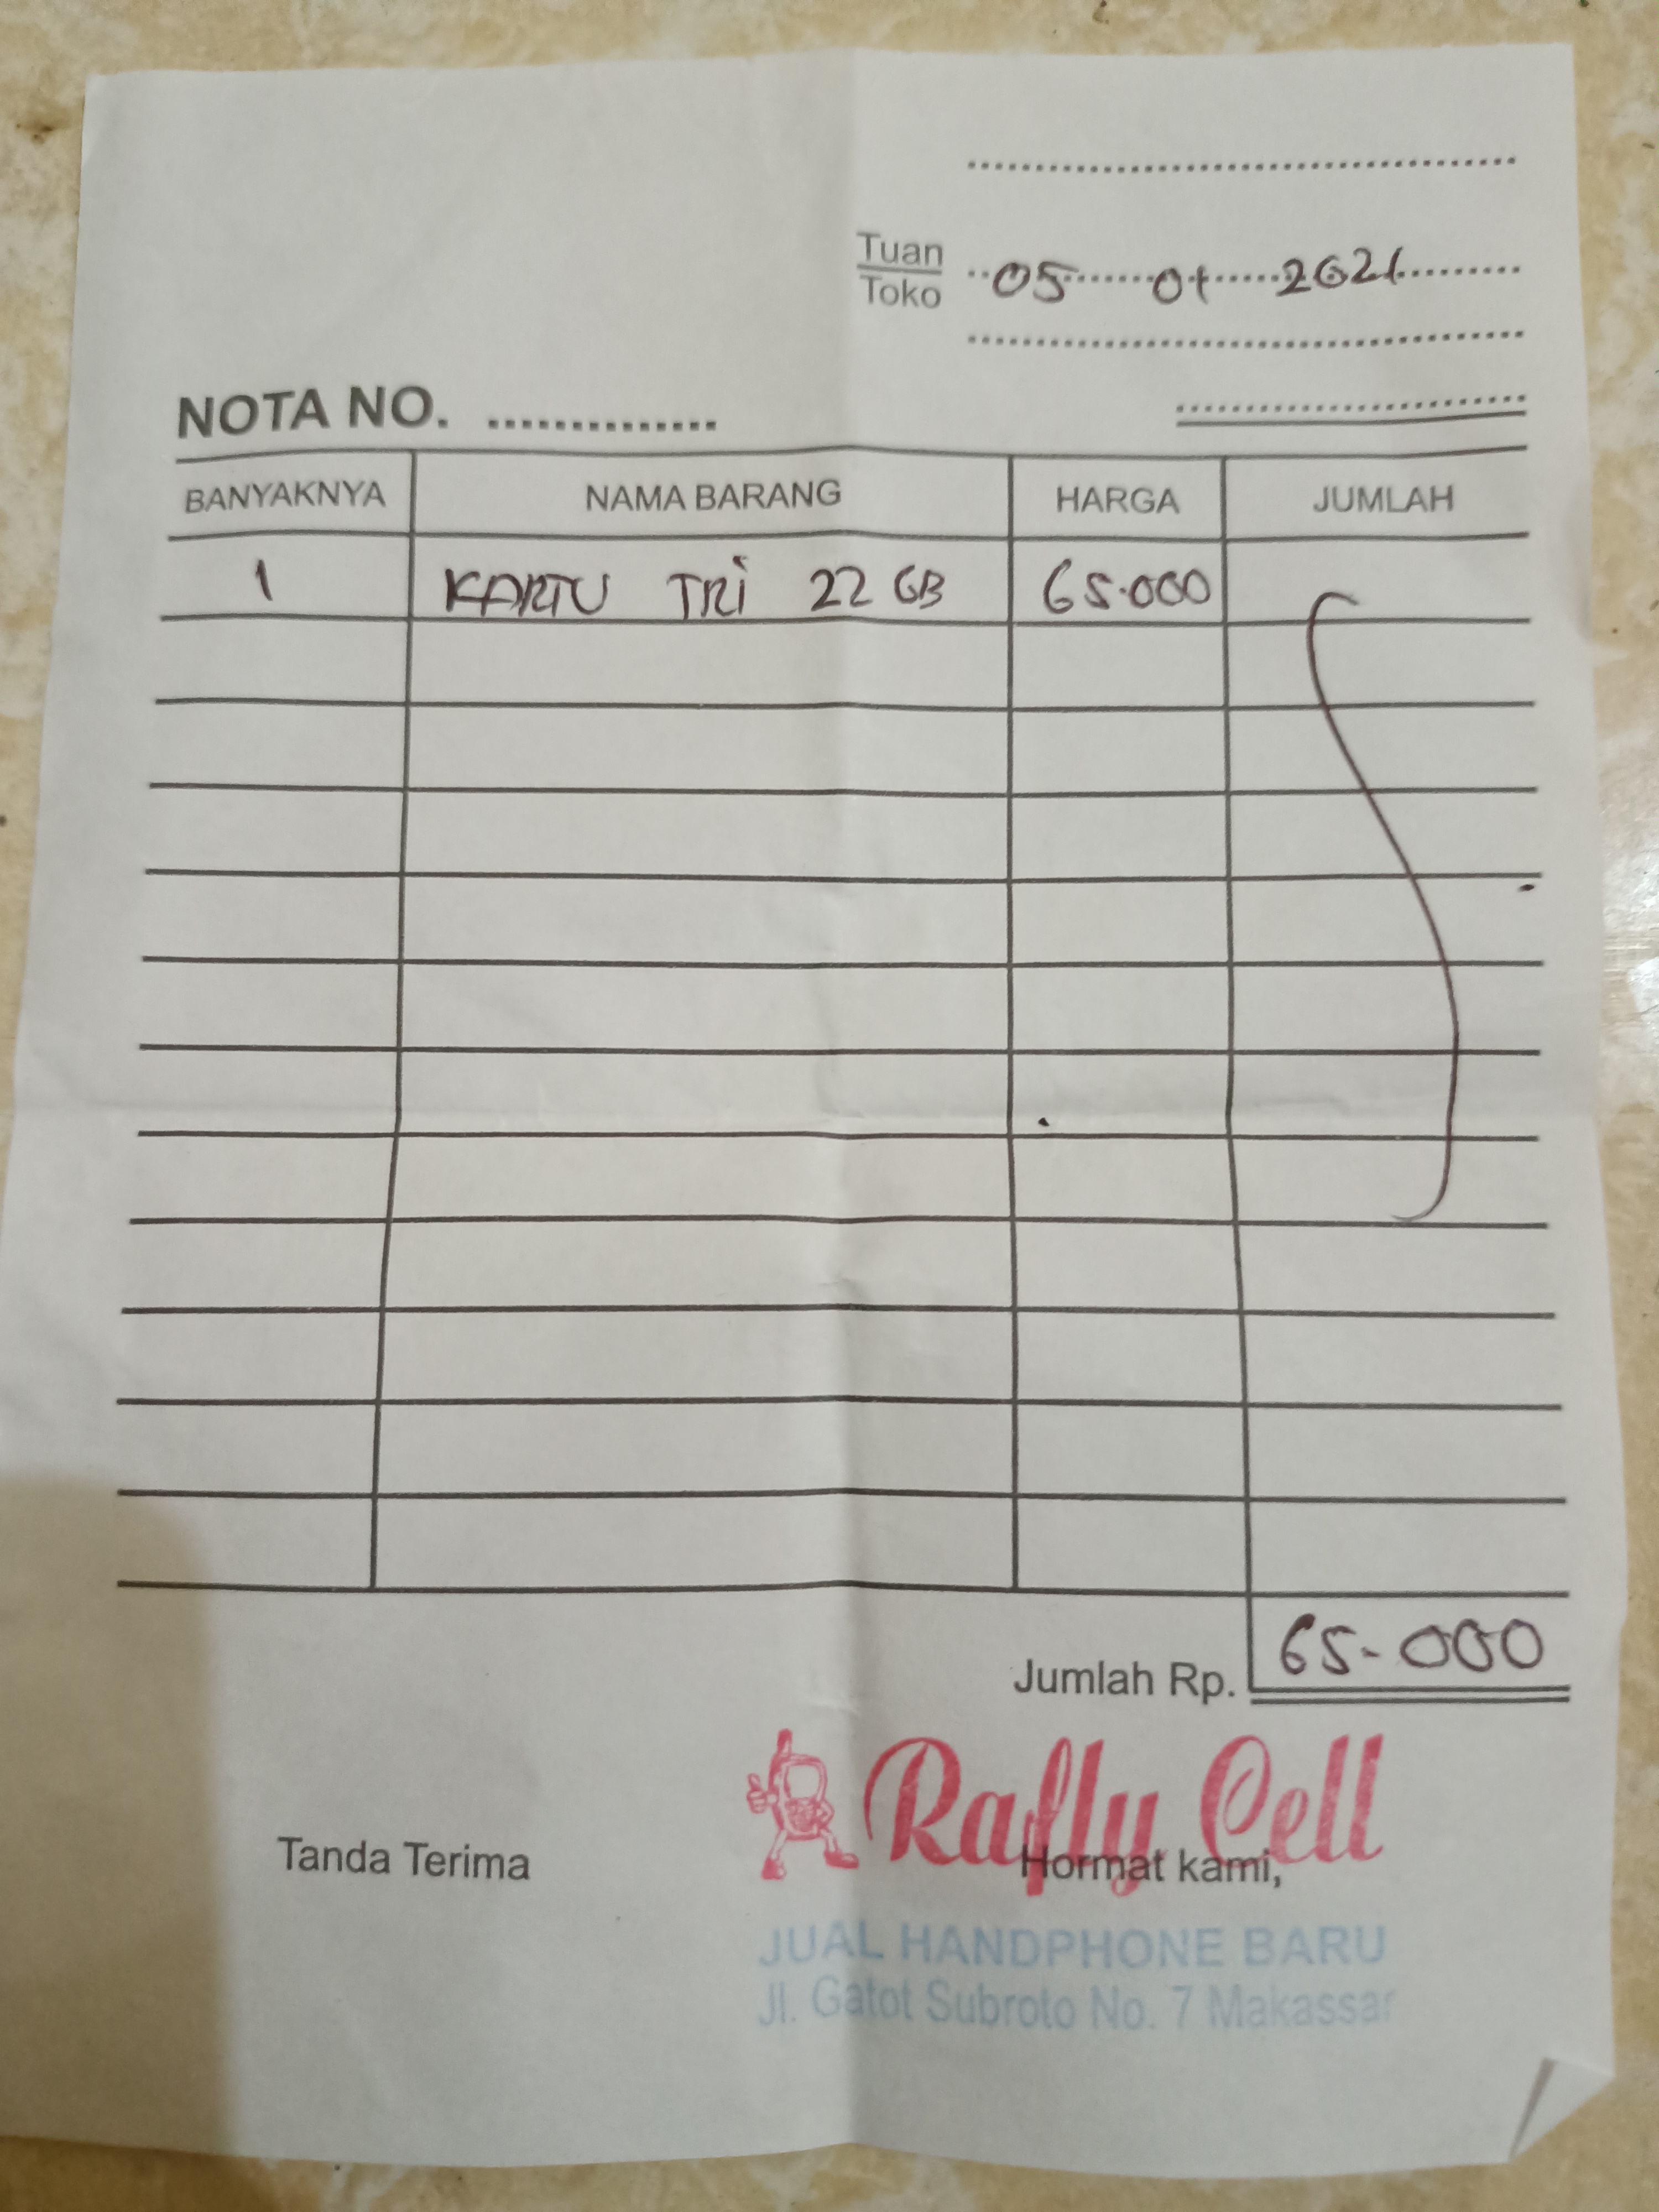 Tuan
Toko
05 01 2021
NOTA NO. ..............
BANYAKNYA NAMA BARANG HARGA JUMLAH
1 KARTU TRI 22 GB 65.000
Jumlah Rp. 65.000
Rafly Cell
Tanda Terima Hormat kami,
JUAL HANDPHONE BARU
Jl. Gatot Subroto No. 7 Makassar